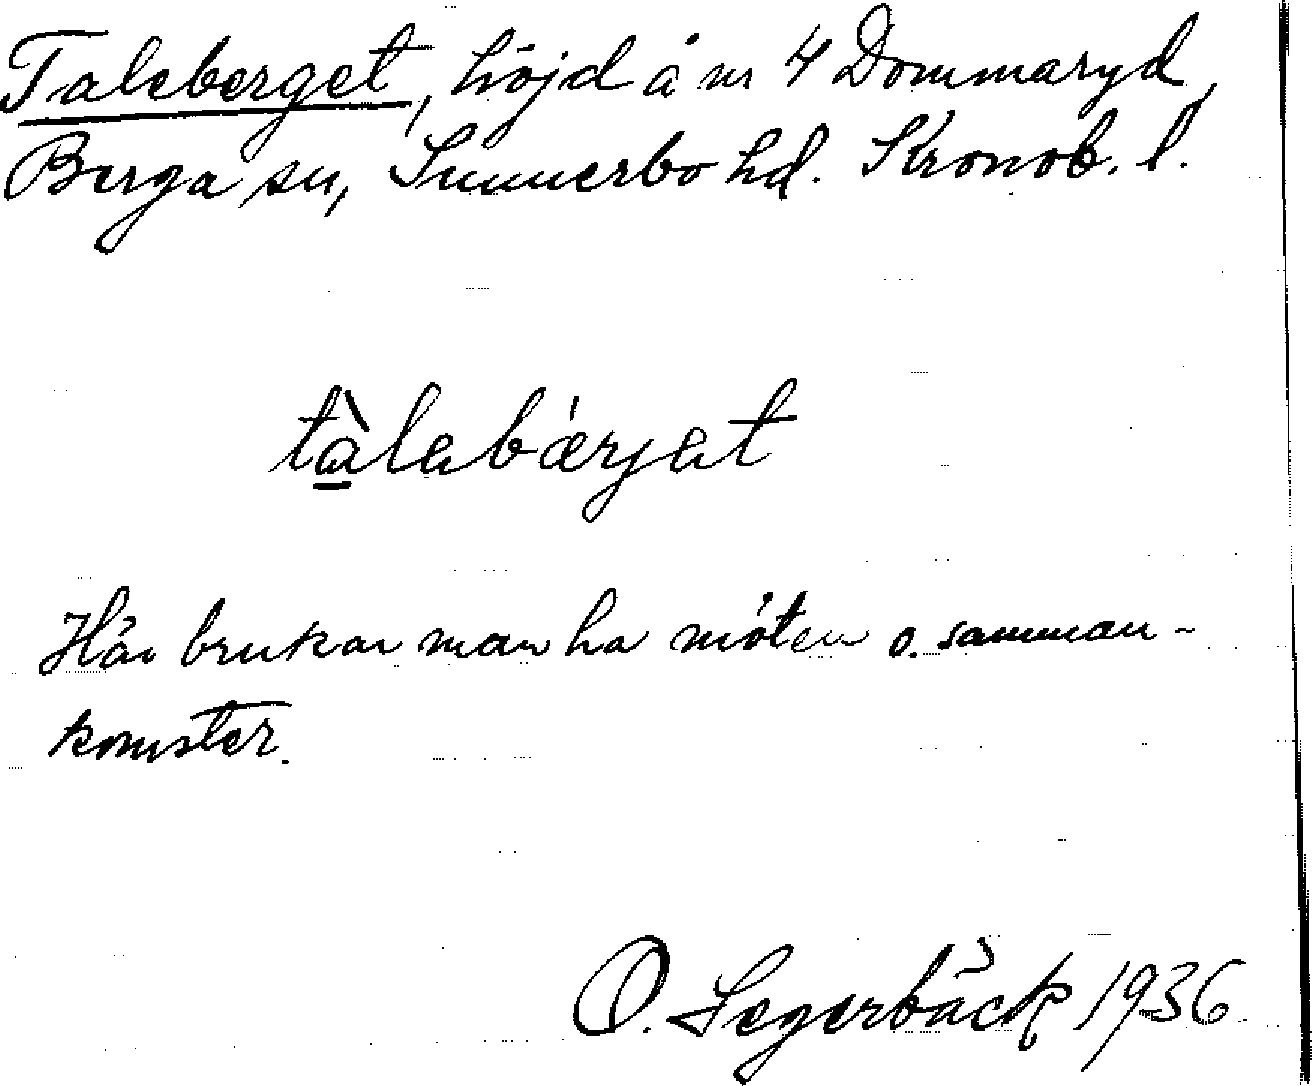 Taleberget, höjd å nr 4 Dommaryd,
Berga sn, Sunnerbo hd. Kronob. l.
tàlebǽrjet
Här brukar man ha möten o. samman-
komster.
O. Segerbäck 1936